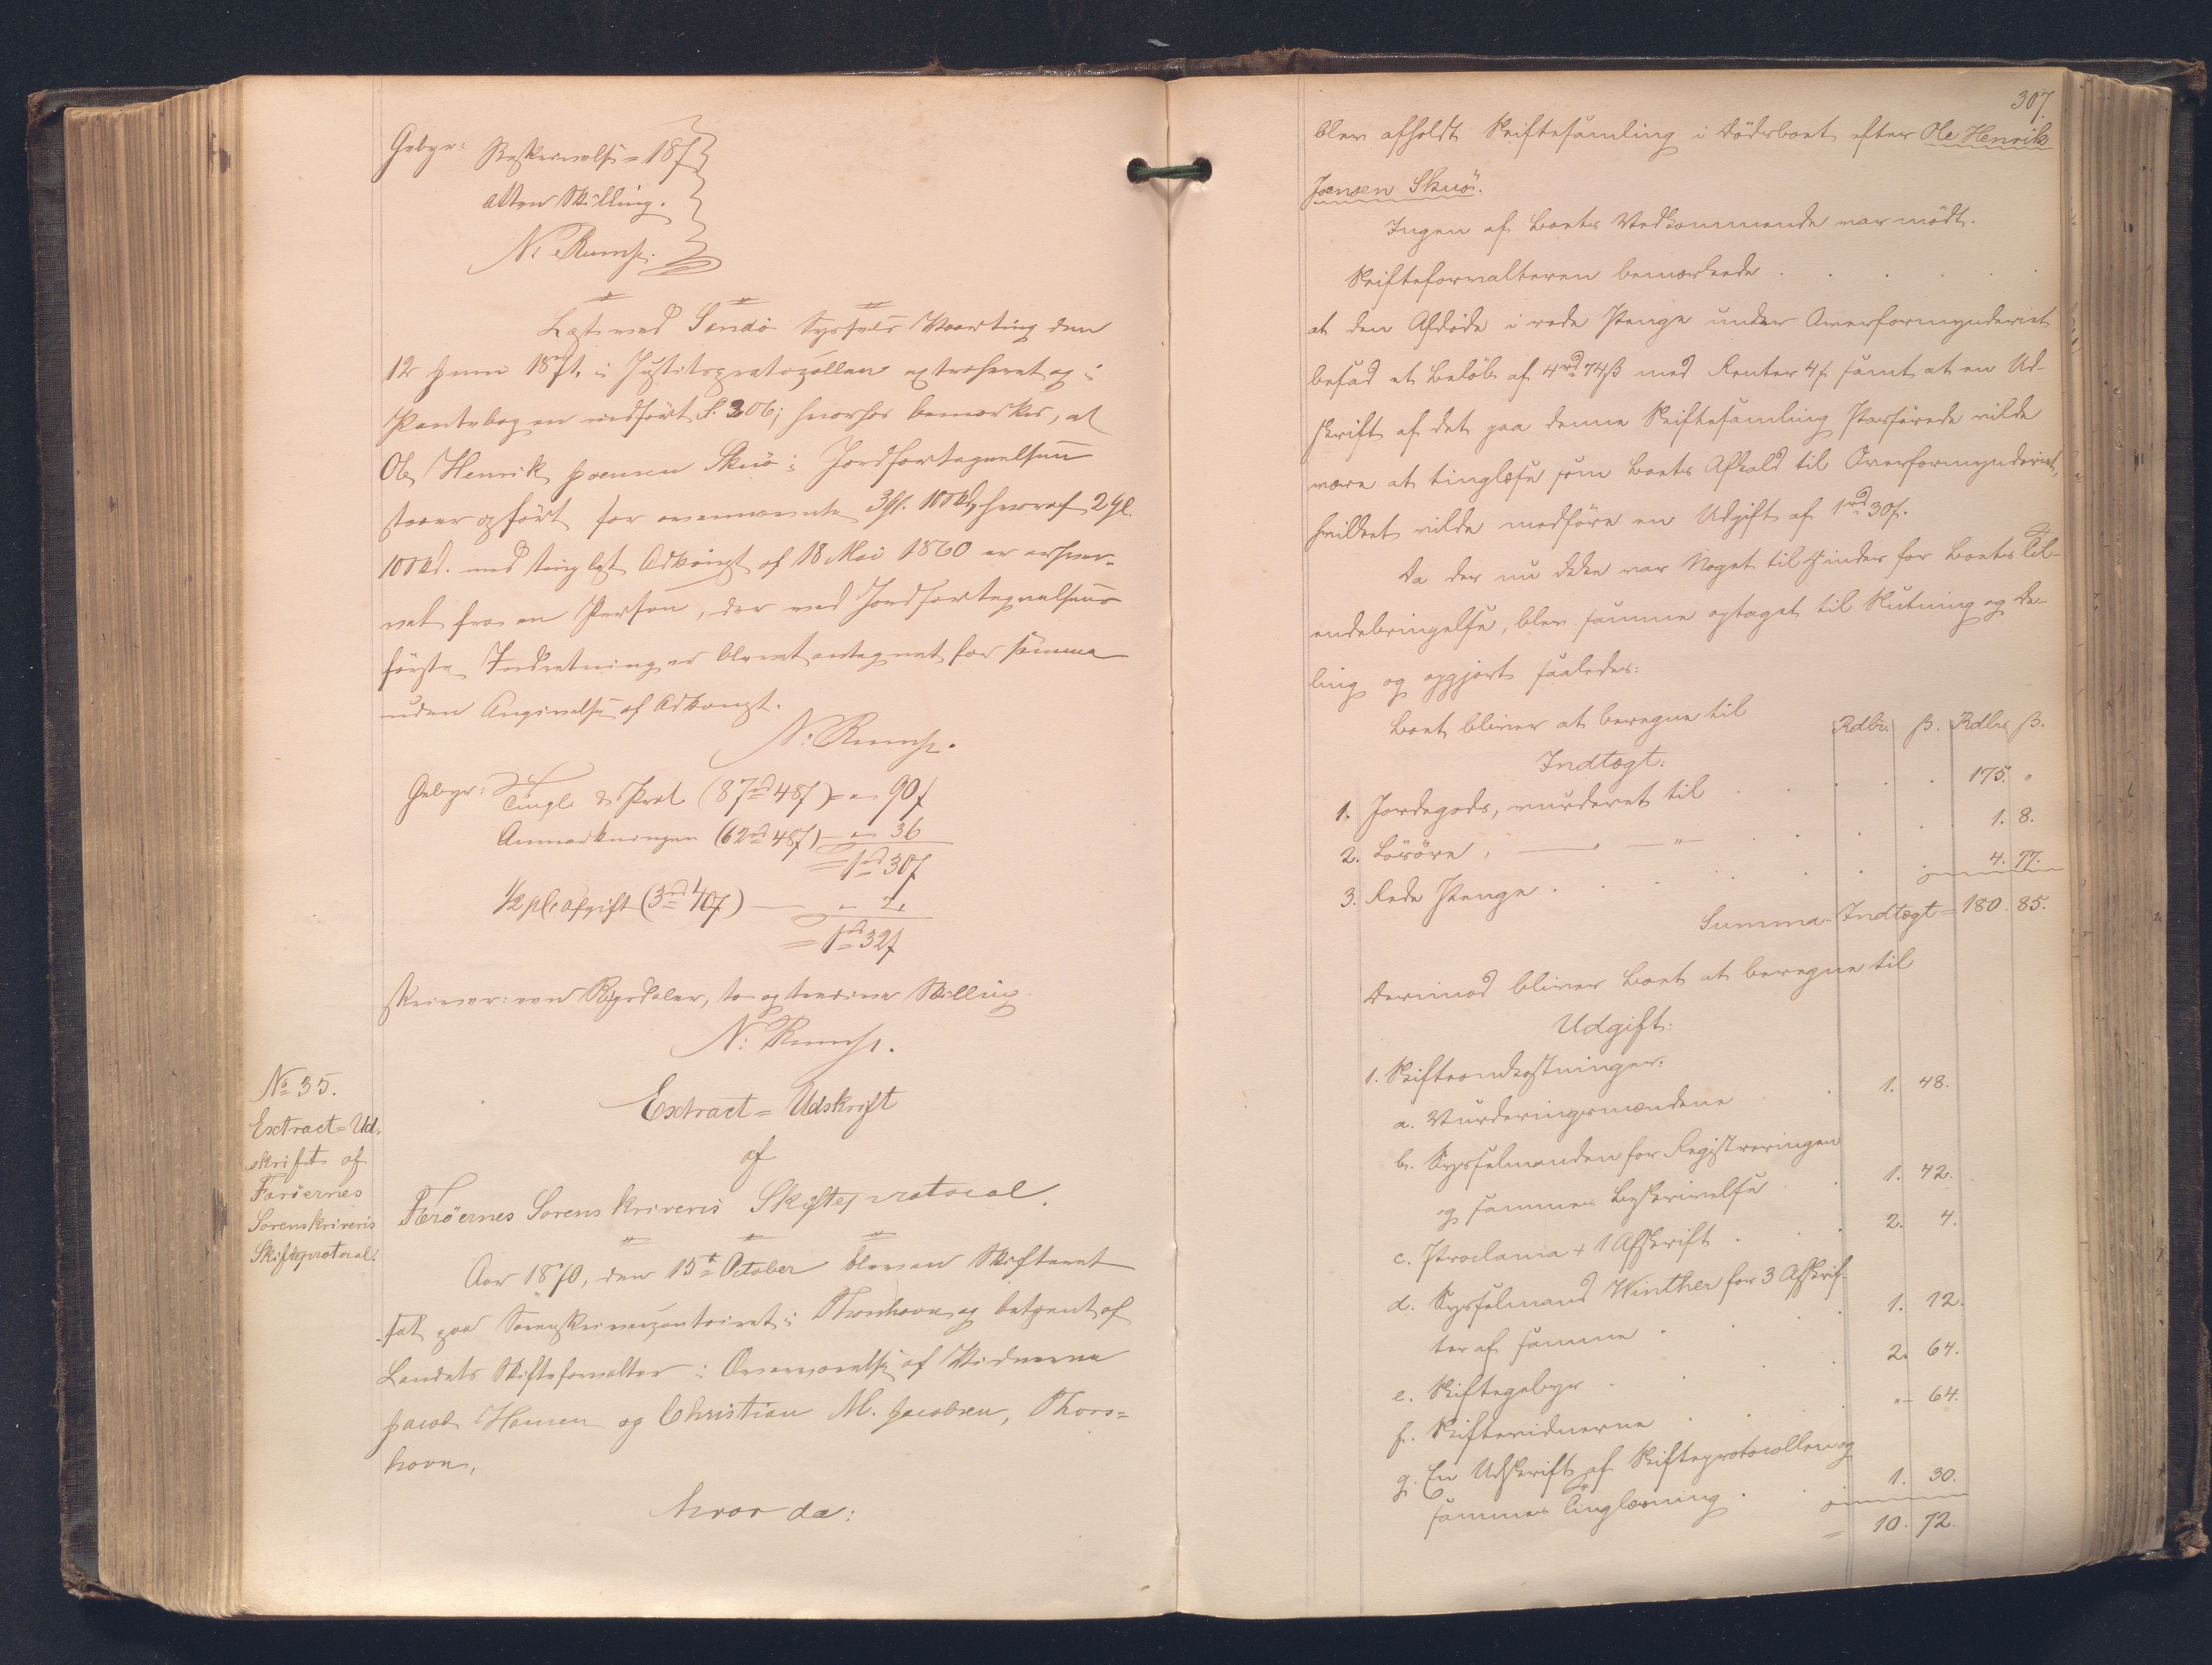 Gebyr: Beskrivelse = 18ß
atten Skilling.
N. Rumse.
Læst ved Sandö Syssels Vaarting den
12 Juni 1871, i Justitsprotocollen extraheret og i
Pantebogen indført S. 306; hvorhos bemærkes, at
Ole Henrik Joensen Skuö i Jordfortegnelsen
staaer opført for ovennævnte 3 Gl. 10 Skd, hvoraf 2 Gl.
10 Skd. med tinglyst Adkomst af 18 Mai 1860 er erhver-
vet fra en Person, der ved Jordfortegnelsens
første Indretning er blevet antegnet for samme
uden Angivelse af Adkomst.
N. Rumse.
Gebyr: Tingl. & Prot. (87rd 48ß) = " 90ß
Anmærkningen (62rd 48ß) — " 36
= 1rd 30ß
1/2 pCt. Afgift (3rd 40ß) — " 2.
= 1rd 32ß
skriver: een Rigsdaler, to og tredive Skilling.
N. Rumse.
No 35.
Extract-Ud-
skrift af
Færöernes
Sorenskriveris
Skifteprotocol.
Extract-Udskrift
af
Færöernes Sorenskriveris Skifteprotocol.
Aar 1870, den 15de October blev en Skifteret
sat paa Sorenskrivercontoiret i Thorshavn og betjent af
Landets Skifteforvalter i Overværelse af Vidnerne
Jacob Hansen og Christian M. Jacobsen, Thors-
havn,
hvor da:
307.
blev afholdt Skiftesamling i Dödsboet efter Ole Henrik
Joensen Skuö.
Ingen af Boets Vedkommende var mödt.
Skifteforvalteren bemærkede
at den Afdöde i rede Penge under Overformynderiet
besad et Belöb af 4rd 74ß med Renter 4ß samt at en Ud-
skrift af det paa denne Skiftesamling Passerede vilde
være at tinglæse som Boets Afkald til Overformynderiet,
hvilket vilde medföre en Udgift af 1rd 30ß.
Da der nu ikke var Noget til Hinder for Boets Til-
endebringelse, blev samme optaget til Slutning og De-
ling og opgjort saaledes:
Boet bliver at beregne til
Rdlr. ß. Rdlr. ß.
Indtægt:
1. Jordegods, vurderet til . . . 175. "
2. Lösöre, — " — . . . 1. 8.
3. Rede Penge . . . 4. 77.
Summa Indtægt = 180. 85.
Derimod bliver Boet at beregne til
Udgift:
1. Skifteomkostninger:
a. Vurderingsmændene . 1. 48.
b. Sysselmanden for Registreringen
og sammes Beskrivelse . 1. 42.
c. Proclama + 1 Afskrift . 2. 4.
d. Sysselmand Winther for 3 Afskrif-
ter af samme . 1. 12.
e. Skiftegebyr . 2. 64.
f. Skiftevidnerne . " 64.
g. En Udskrift af Skifteprotocollen og
sammes Tinglæsning . 1. 30.
= 10. 72.